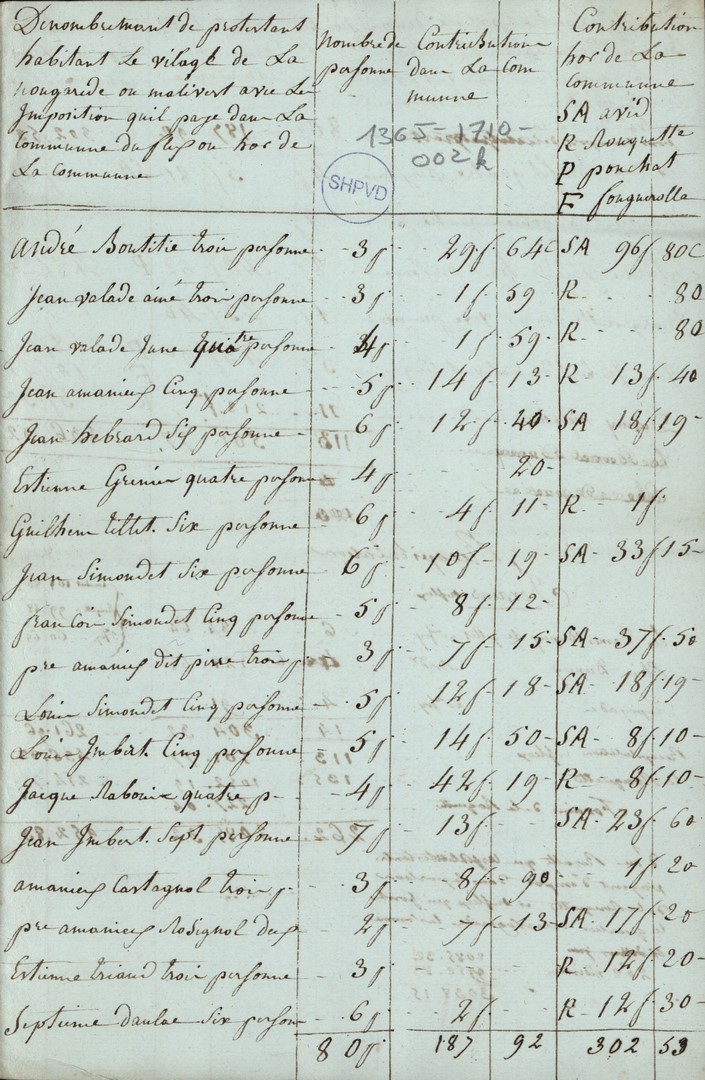 Denombrement de protestant
habitant Le vilage de La
nougarede ou malivert avec Les
Imposition quil paye dans La
Commune du fleix ou hor de
La communne
nombre de
personne
Contribution
dans La Com
munne
Contribution
hor de La
Communne
SA avid
R Rouquette
P ponchat
F fouguerolla
1365-1710-
002 k
SHPVD
André Boutitie troix personne 3 p 29 f 64 c SA 96 f 80 C
Jean valade ainé troix personne 3 p 1 f 59 R - - 80
Jean valade June quatre personne 4 p 1 f 59 R - - 80
Jean amanieux Cinq personne 5 p 14 f 13 R 13 f 40
Jean hebrard Six personne 6 p 12 f 20 SA 18 f 19
Estienne Grenier quatre personne 4 p 20
Guilhem tillet Six personne 6 p 4 f 11 R 1 f
Jean Simondet Six personne 6 p 10 f 19 SA 33 f 15
francoix Simondet Cinq personne 5 p 8 f 12
pre amanieux dit pirre troix p 3 p 7 f 15 SA 37 f 50
Louix Simondet Cinq personne 5 p 12 f 18 SA 18 f 19
Louix Jmbert Cinq personne 5 p 14 f 50 SA 8 f 10
Jacque Rabouix quatre p 4 p 42 f 19 R 8 f 10
Jean Jmbert Sept personne 7 p 13 f SA 23 f 60
amanieux Castagnol troix p 3 p 8 f 90 1 f 20
pre amanieux Rosignol deux 2 p 7 f 13 SA 17 f 20
Estienne triaud troix personne 3 p R 12 f 20
Septieme daulae Six person 6 p 2 f R 12 f 30
80 p 187 92 302 53